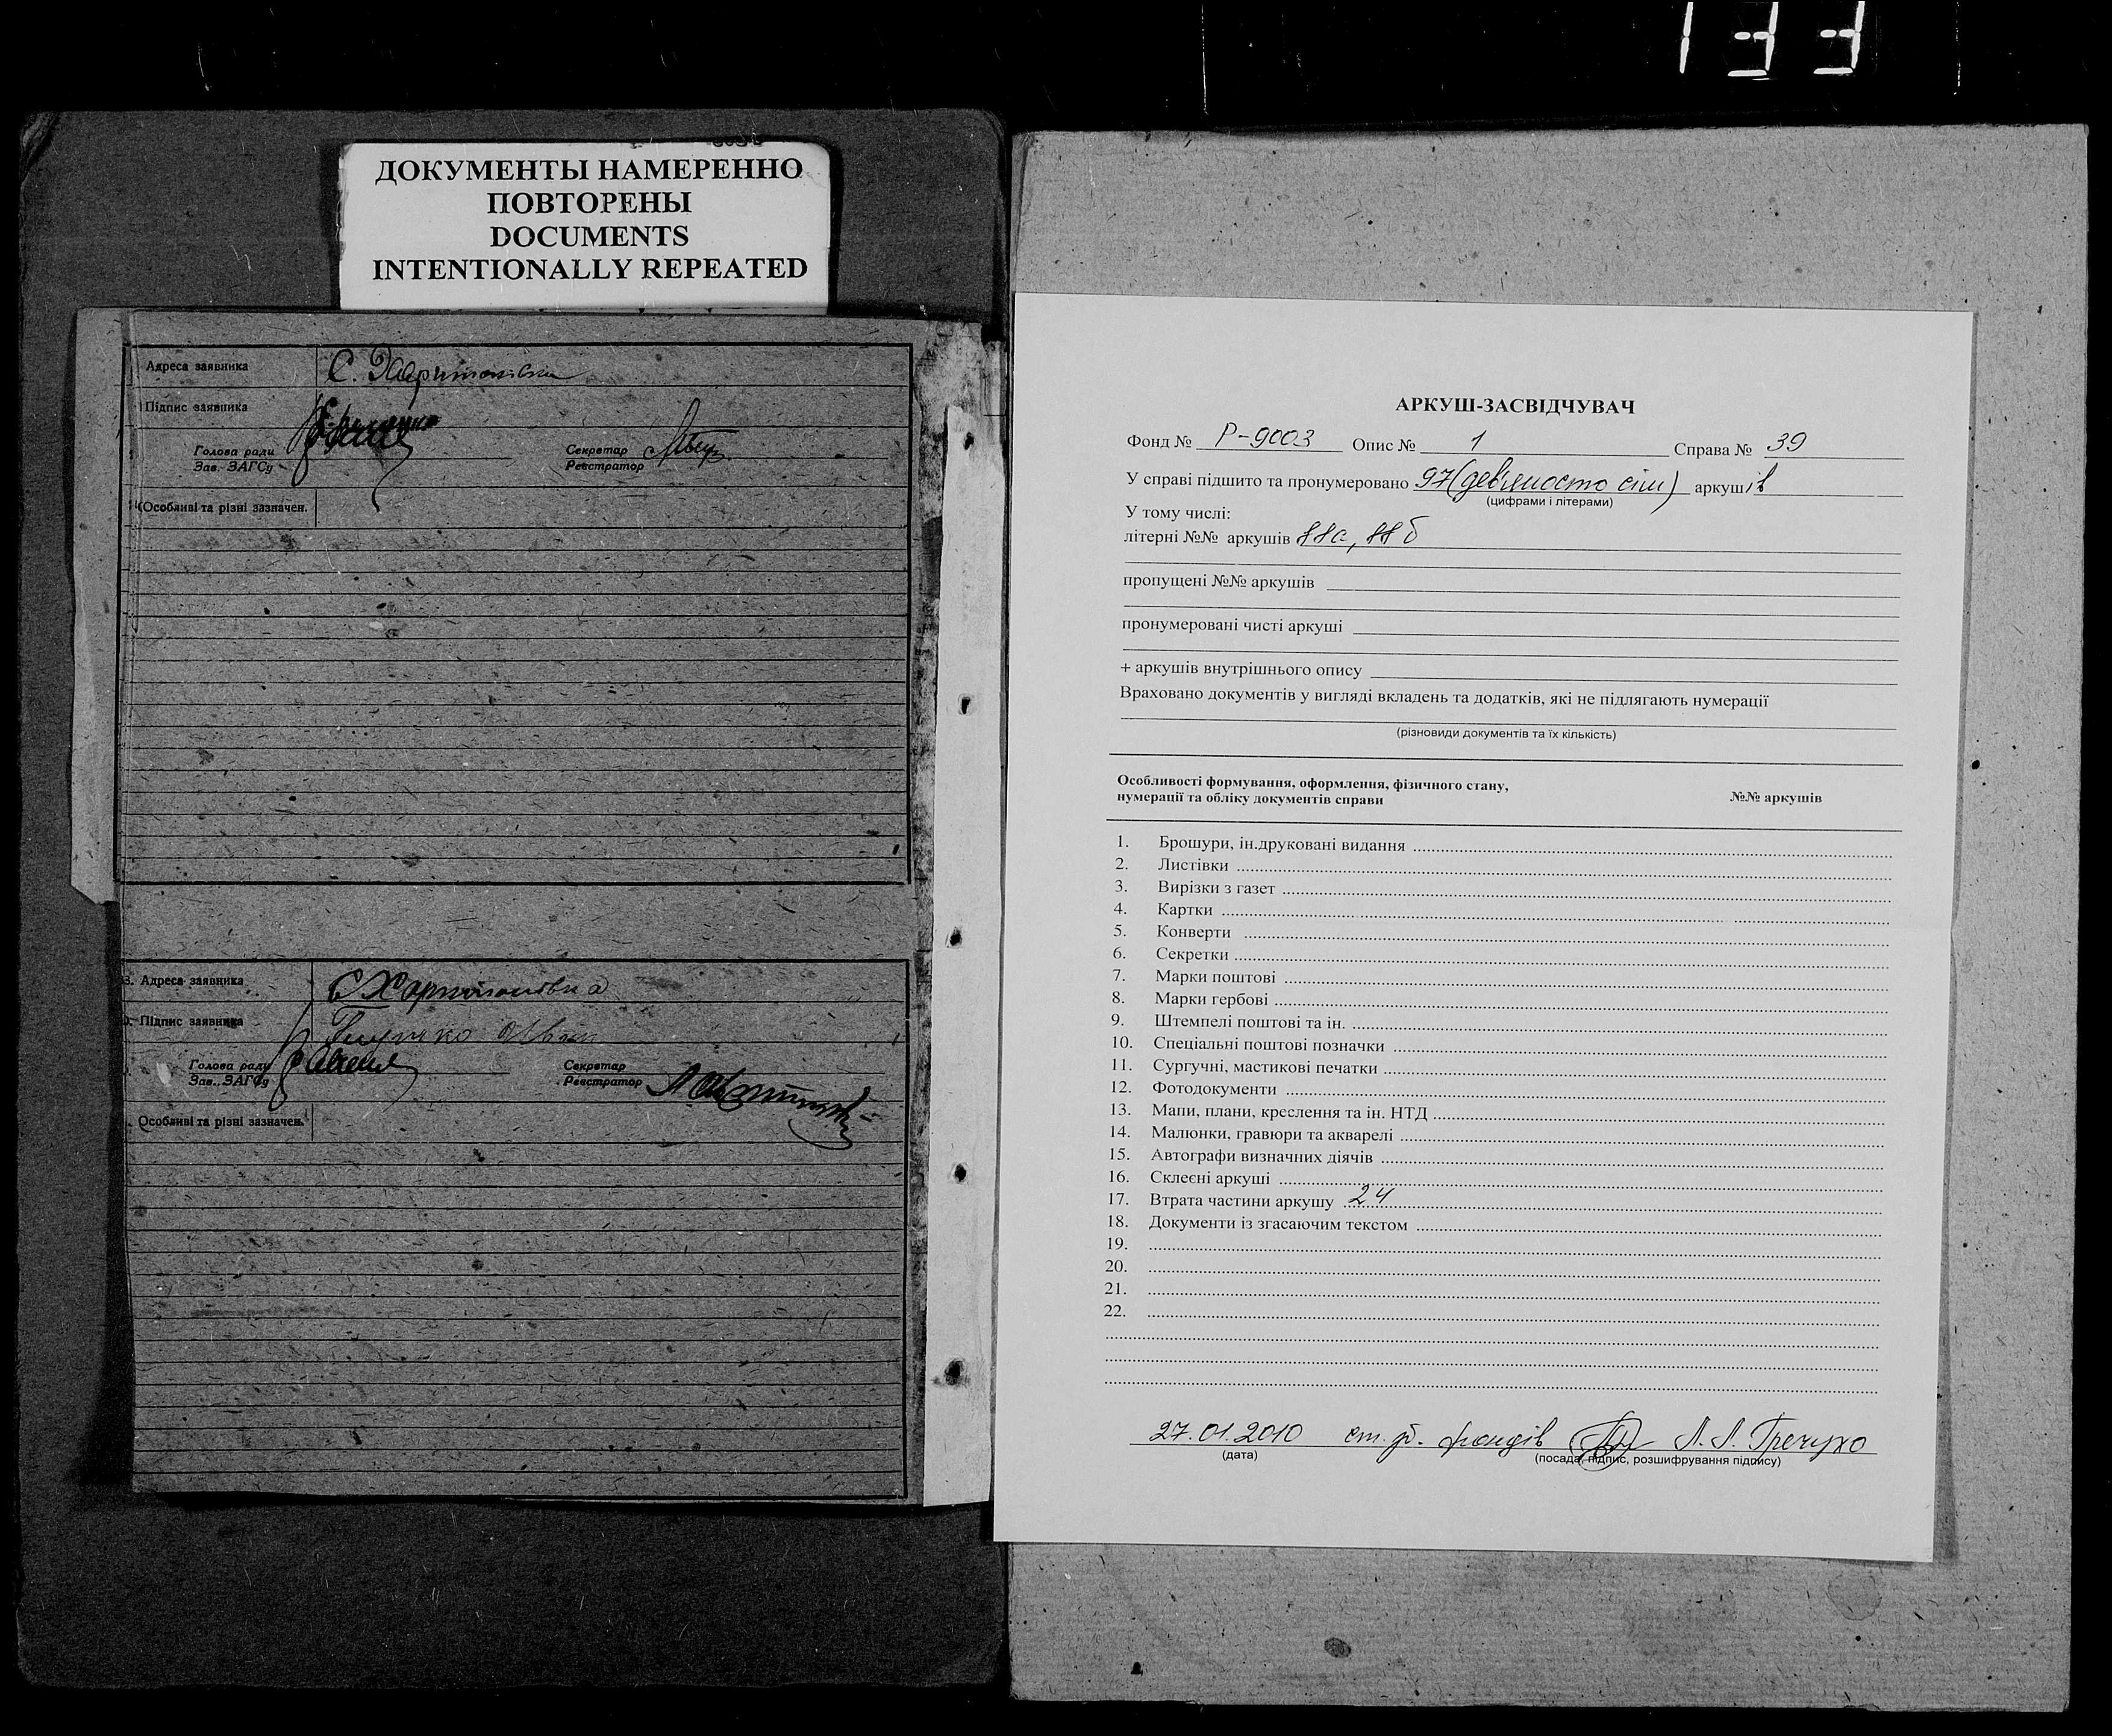 133
ДОКУМЕНТЫ НАМЕРЕННО
ПОВТОРЕНЫ
DOCUMENTS
INTENTIONALLY REPEATED
Адреса заявника С. Харитонівка
Підпис заявника
Голова ради
Зав. ЗАГСу
Секретар
Реєстратор
Особливі та різні зазначен.
8. Адреса заявника С Харитонівка
9. Підпис заявника
Голова ради
Зав. ЗАГСу
Секретар
Реєстратор
Особливі та різні зазначен.
АРКУШ-ЗАСВІДЧУВАЧ
Фонд № Р-9003 Опис № 1 Справа № 39
У справі підшито та пронумеровано 97 (дев'яносто сім) аркушів
(цифрами і літерами)
У тому числі:
літерні №№ аркушів 88а, 88б
пропущені №№ аркушів
пронумеровані чисті аркуші
+ аркушів внутрішнього опису
Враховано документів у вигляді вкладень та додатків, які не підлягають нумерації
(різновиди документів та їх кількість)
Особливості формування, оформлення, фізичного стану,
нумерації та обліку документів справи №№ аркушів
1. Брошури, ін.друковані видання
2. Листівки
3. Вирізки з газет
4. Картки
5. Конверти
6. Секретки
7. Марки поштові
8. Марки гербові
9. Штемпелі поштові та ін.
10. Спеціальні поштові позначки
11. Сургучні, мастикові печатки
12. Фотодокументи
13. Мапи, плани, креслення та ін. НТД
14. Малюнки, гравюри та акварелі
15. Автографи визначних діячів
16. Склеєні аркуші
17. Втрата частини аркушу 24
18. Документи із згасаючим текстом
19.
20.
21.
22.
27.01.2010 ст. зб. фондів Л. Л. Гречухо
(дата) (посада, підпис, розшифрування підпису)